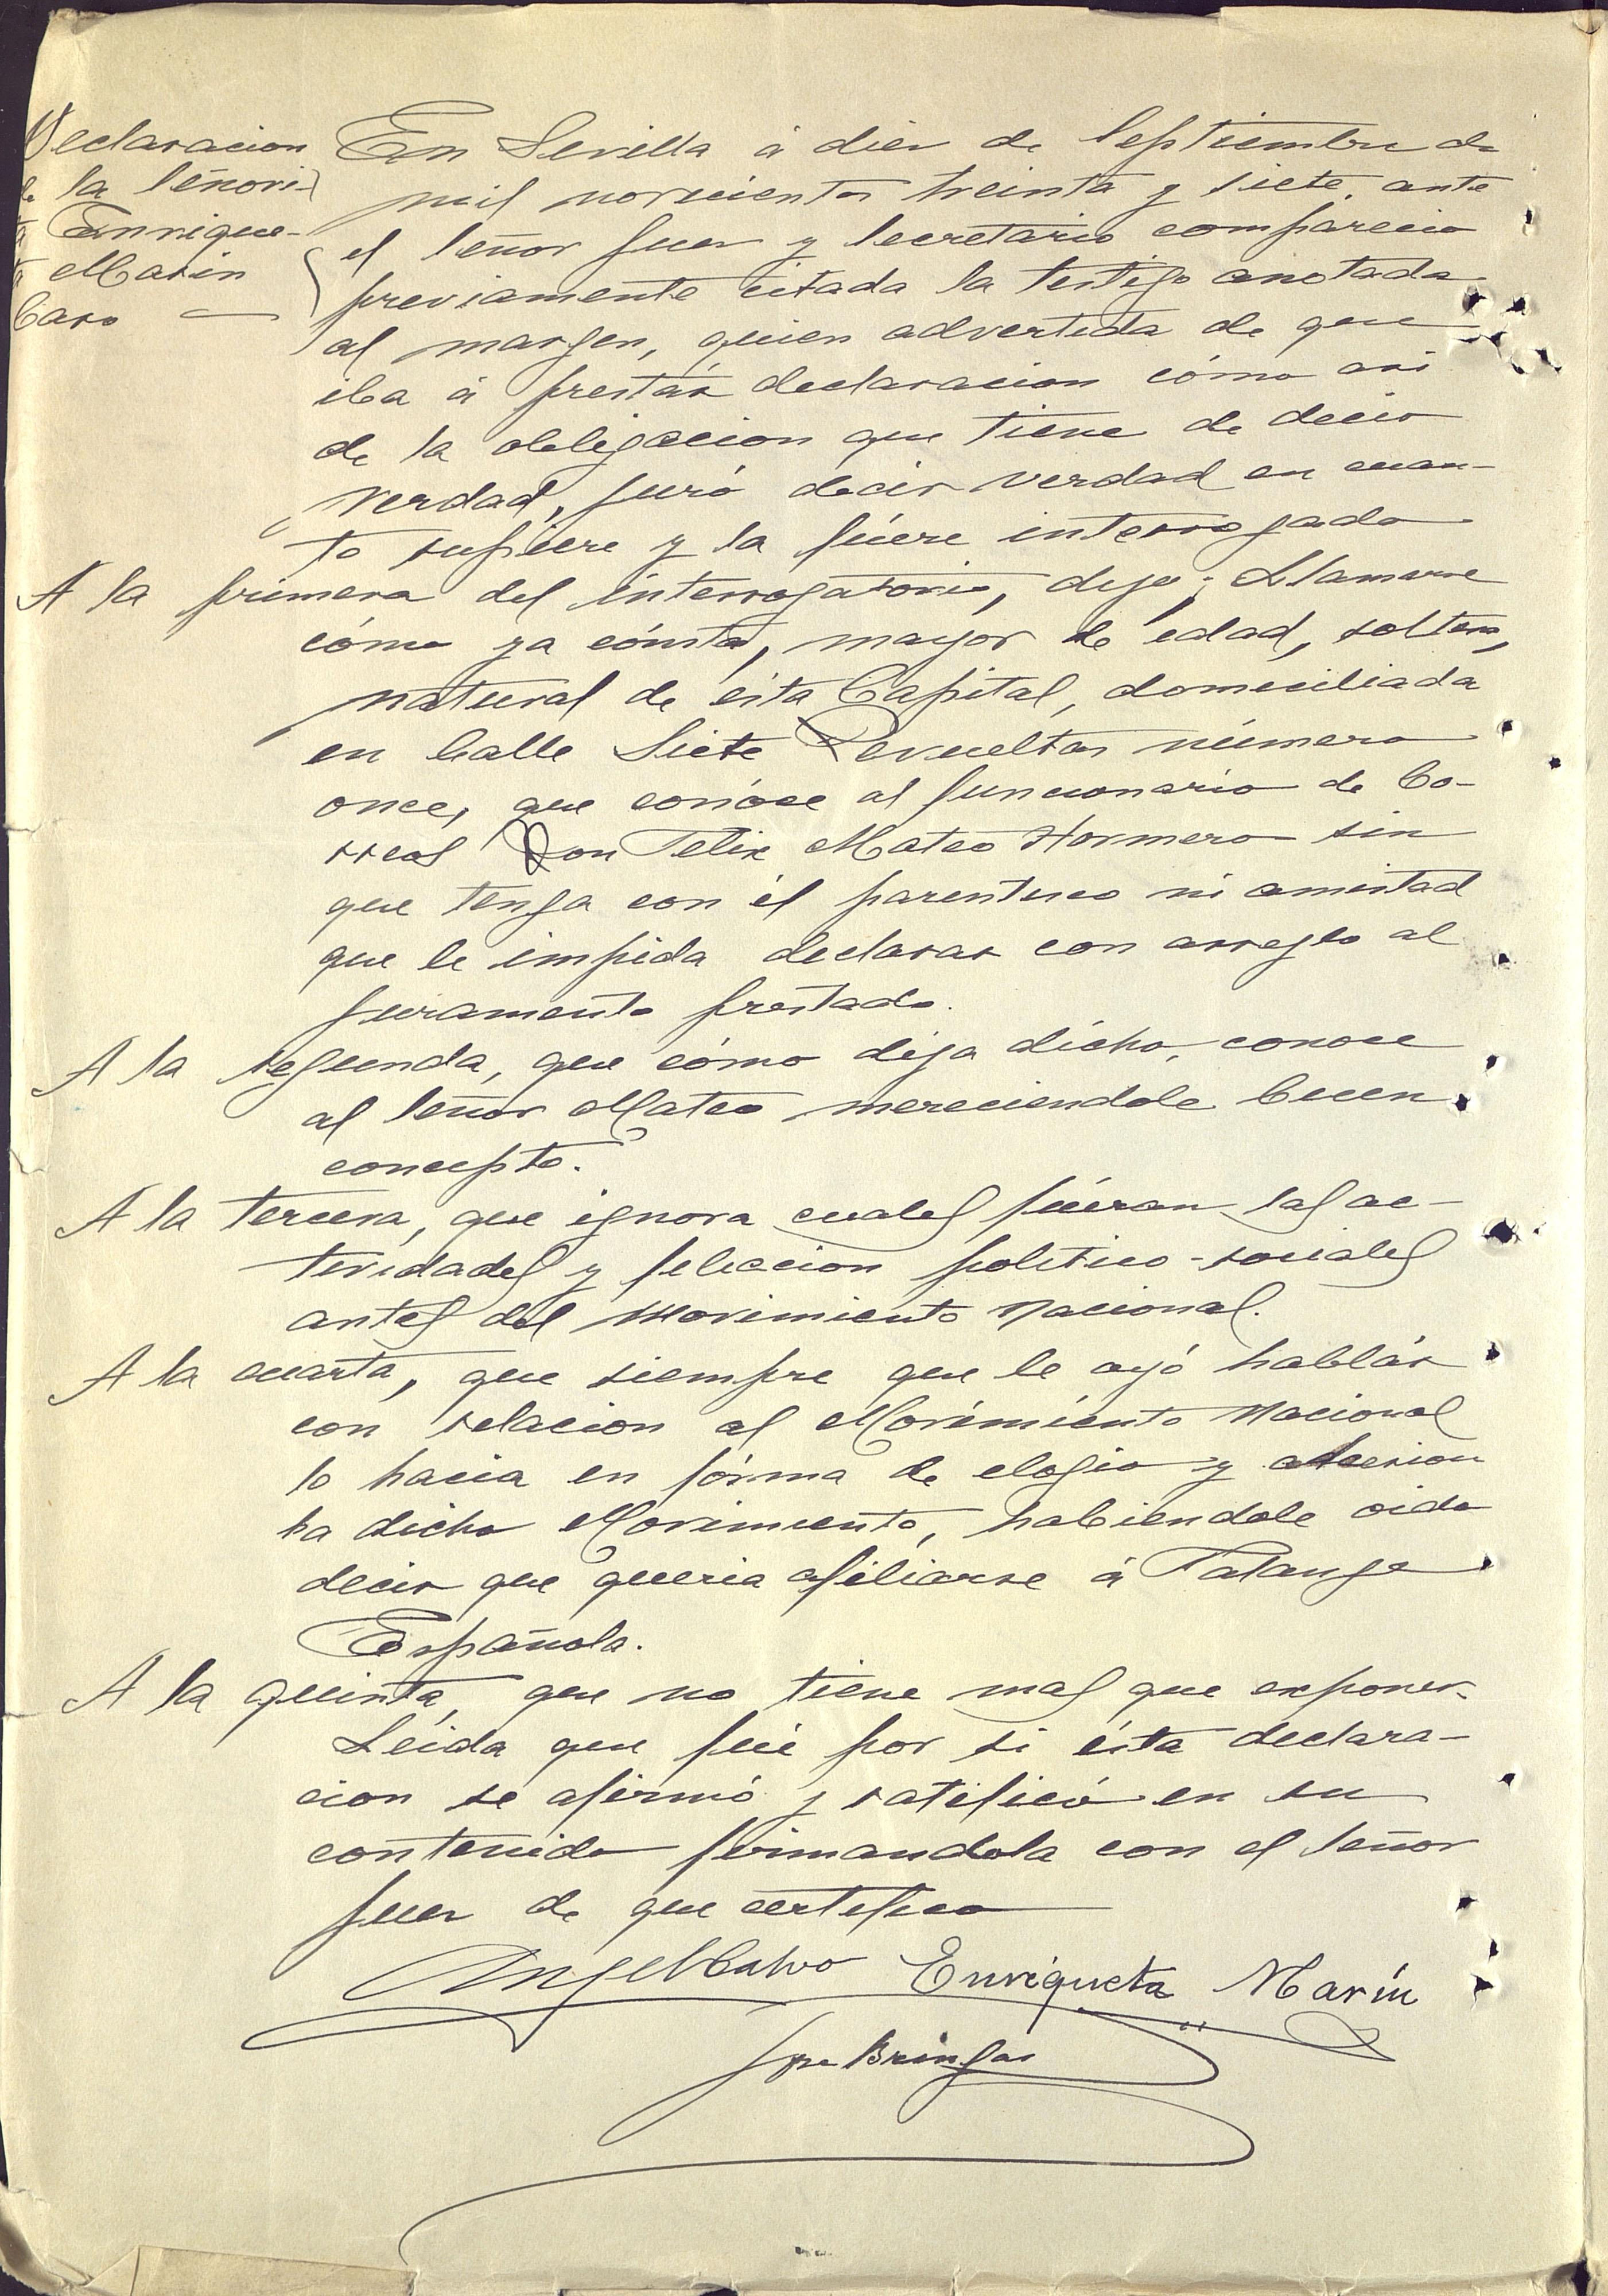 Declaracion
de la Señori-
ta Enrique-
ta Marin
Caro —
En Sevilla á diez de Septiembre de
mil novecientos treinta y siete, ante
el Señor Juez y Secretario comparecio
previamente citada la testigo anotada
al margen, quien advertida de que
iba á prestár declaracion cómo asi
de la obligacion que tiene de decir
verdad, juró decir verdad en cuan-
to supiere y la fúere interrogado
A la primera del interrogatorio, dijo: Llamarse
cómo ya cónsta, mayor de edad, soltera,
natural de ésta Capital, domiciliada
en Calle Siete Revueltas número
once, que conóce al funcionario de Co-
rreos Don Felix Mateo Hormero sin
que tenga con él parentesco ni amistad
que le impida declarar con arreglo al
juramento prestado.
A la segunda, que cómo deja dicho, conoce
al Señor Mateo mereciendole buen
concepto.
A la tercera, que ignora cuales fúeran las ac-
tividades y filiacion politico-sociales
antes del Movimiento Nacional.
A la cuarta, que siempre que le oyó hablár
con relacion al Movimiento Nacional
lo hacia en fórma de elogio y adhesion
ha dicho Movimiento, habiendole oido
decir que queria afiliarse á Falange
Española.
A la quinta, que no tiene mas que exponer.
Leida que fué por si ésta declara-
cion se afirmó y ratificó en su
contenido firmandola con el Señor
Juez de que certifico
Angel Calvo Enriqueta Marín
Bringas